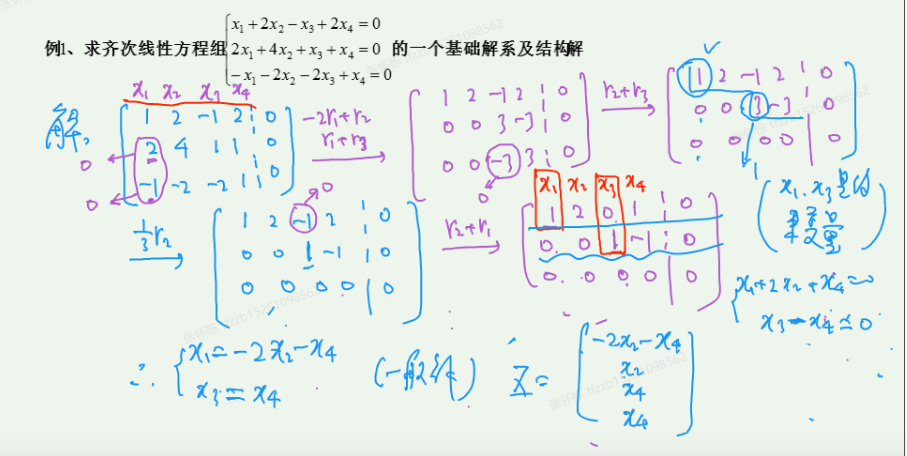 例1、求齐次线性方程组 { x₁+2x₂-x₃+2x₄=0
2x₁+4x₂+x₃+x₄=0 的一个基础解系及结构解
-x₁-2x₂-2x₃+x₄=0
x₁ x₂ x₃ x₄
解:
1 2 -1 2 | 0
2 4 1 1 | 0
-1 -2 -2 1 | 0
0
0
-2r₁+r₂
r₁+r₃
1 2 -1 2 | 0
0 0 3 -3 | 0
0 0 -3 3 | 0
0
r₂+r₃
1 2 -1 2 | 0
0 0 3 -3 | 0
0 0 0 0 | 0
1
1/3 r₂
0
1 2 -1 2 | 0
0 0 1 -1 | 0
0 0 0 0 | 0
r₂+r₁
x₁ x₂ x₃ x₄
1 2 0 1 | 0
0 0 1 -1 | 0
0 0 0 0 | 0
x₁、x₃是
x₁+2x₂+x₄=0
x₃-x₄=0
∴ { x₁=-2x₂-x₄
x₃=x₄
(一般解)
X=
-2x₂-x₄
x₂
x₄
x₄